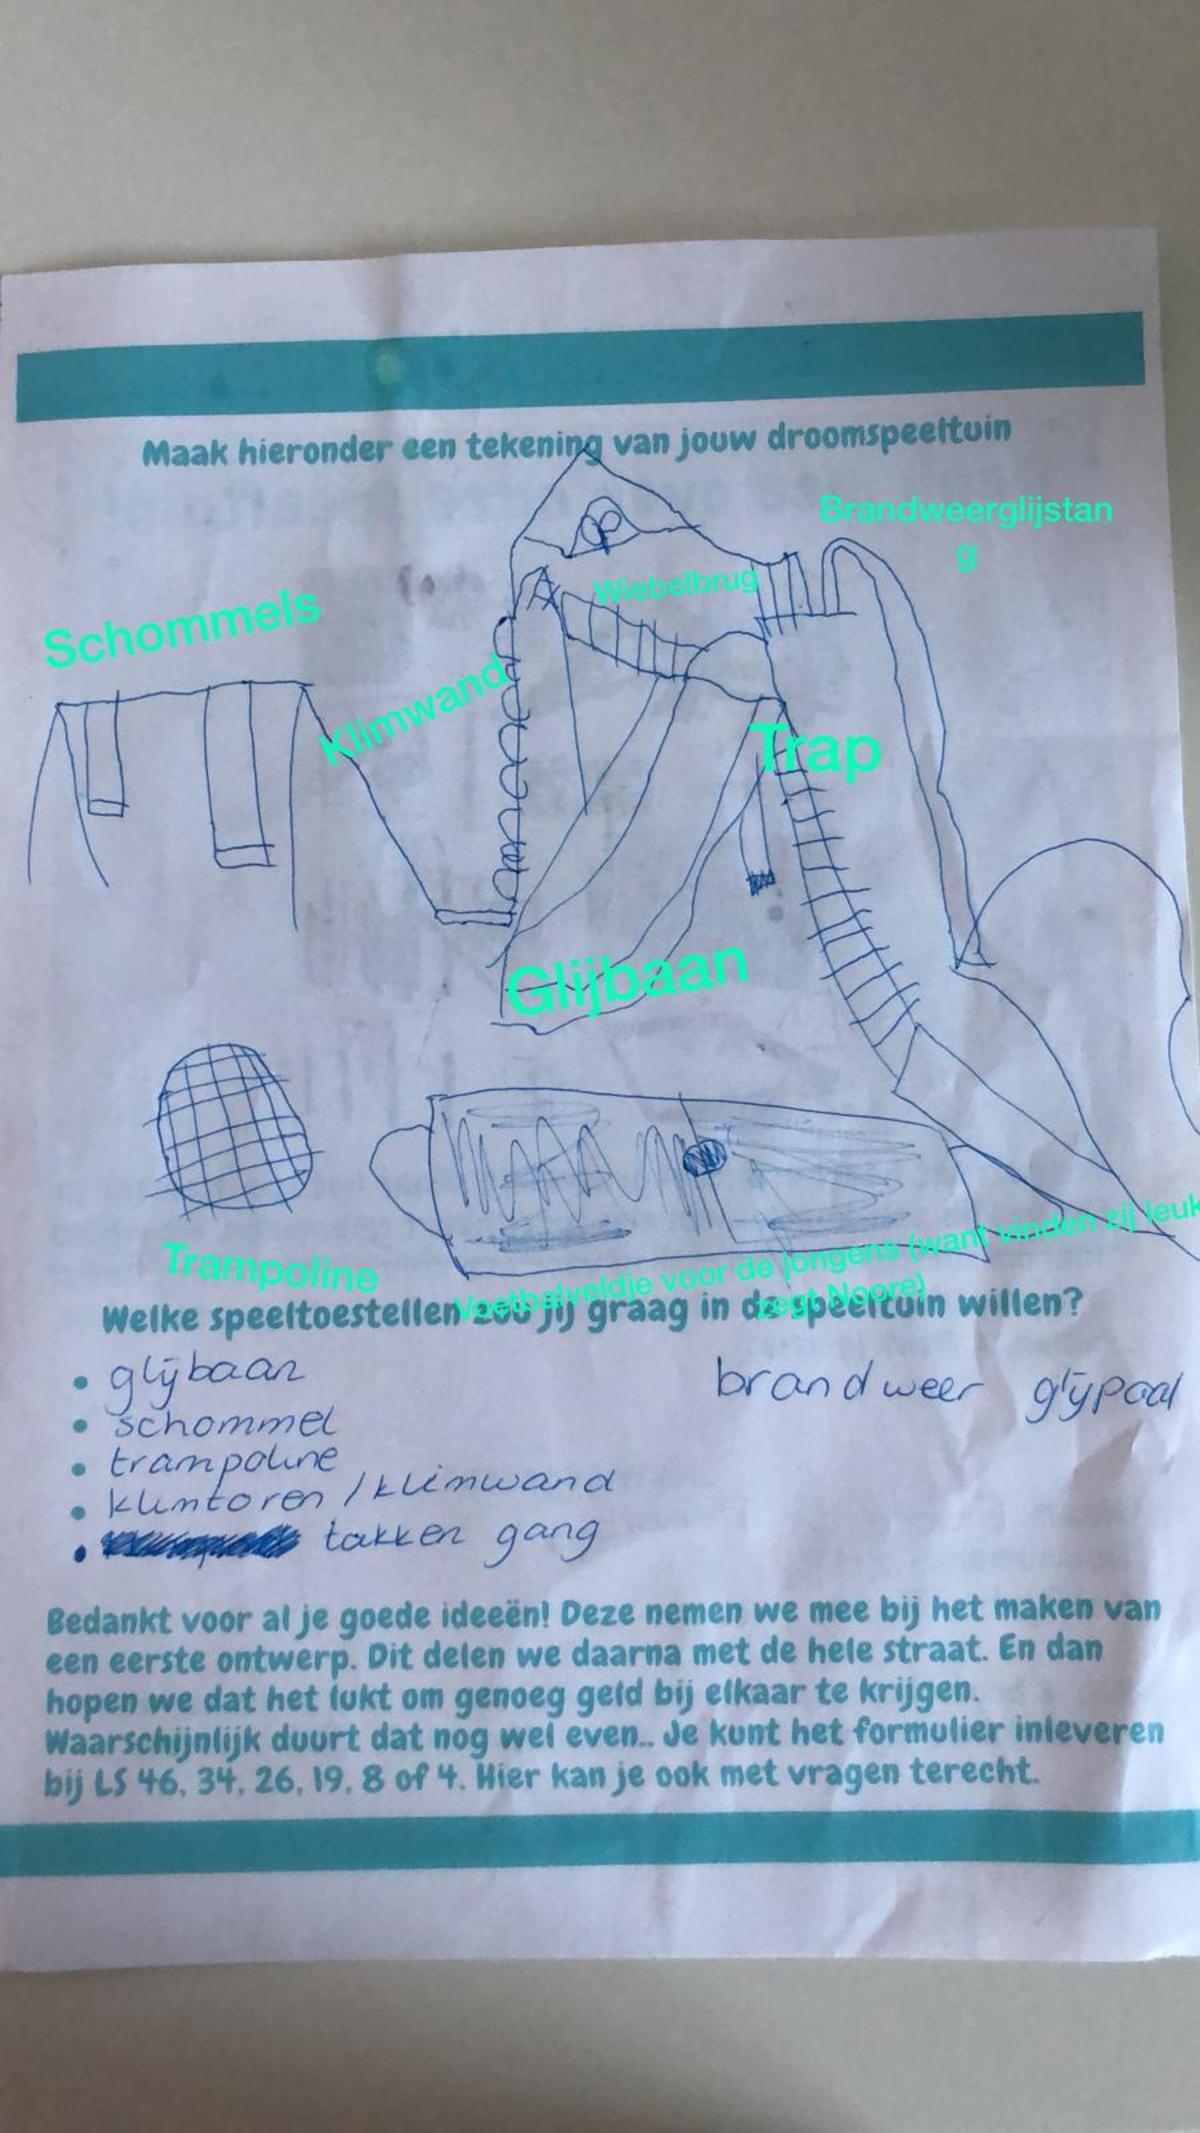 Maak hieronder een tekening van jouw droomspeeltuin
Brandweerglijstan
g
Wiebelbrug
Schommels
Klimwand
Trap
Glijbaan
Trampoline
Voetbalveldje voor de jongens (want vinden zij leuk
zegt Noore)
Welke speeltoestellen zou jij graag in de speeltuin willen?
glijbaan
brandweer glijpaal
schommel
trampoline
klimtoren / klimwand
takken gang
Bedankt voor al je goede ideeën! Deze nemen we mee bij het maken van
een eerste ontwerp. Dit delen we daarna met de hele straat. En dan
hopen we dat het lukt om genoeg geld bij elkaar te krijgen.
Waarschijnlijk duurt dat nog wel even.. Je kunt het formulier inleveren
bij LS 46, 34, 26, 19, 8 of 4. Hier kan je ook met vragen terecht.